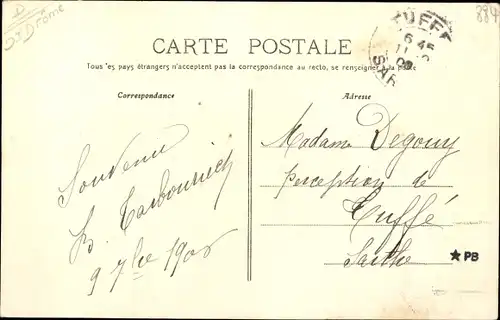 D
Dt Drôme
884
TUFFÉ
16 45
11
09
SAR
CARTE POSTALE
Tous les pays étrangers n'acceptent pas la correspondance au recto, se renseigner à la poste
Correspondance
Adresse
Souvenir
B. Tarbouriech
9 7bre 1908
Madame Degouy
perception de
Tuffé
Sarthe
★PB